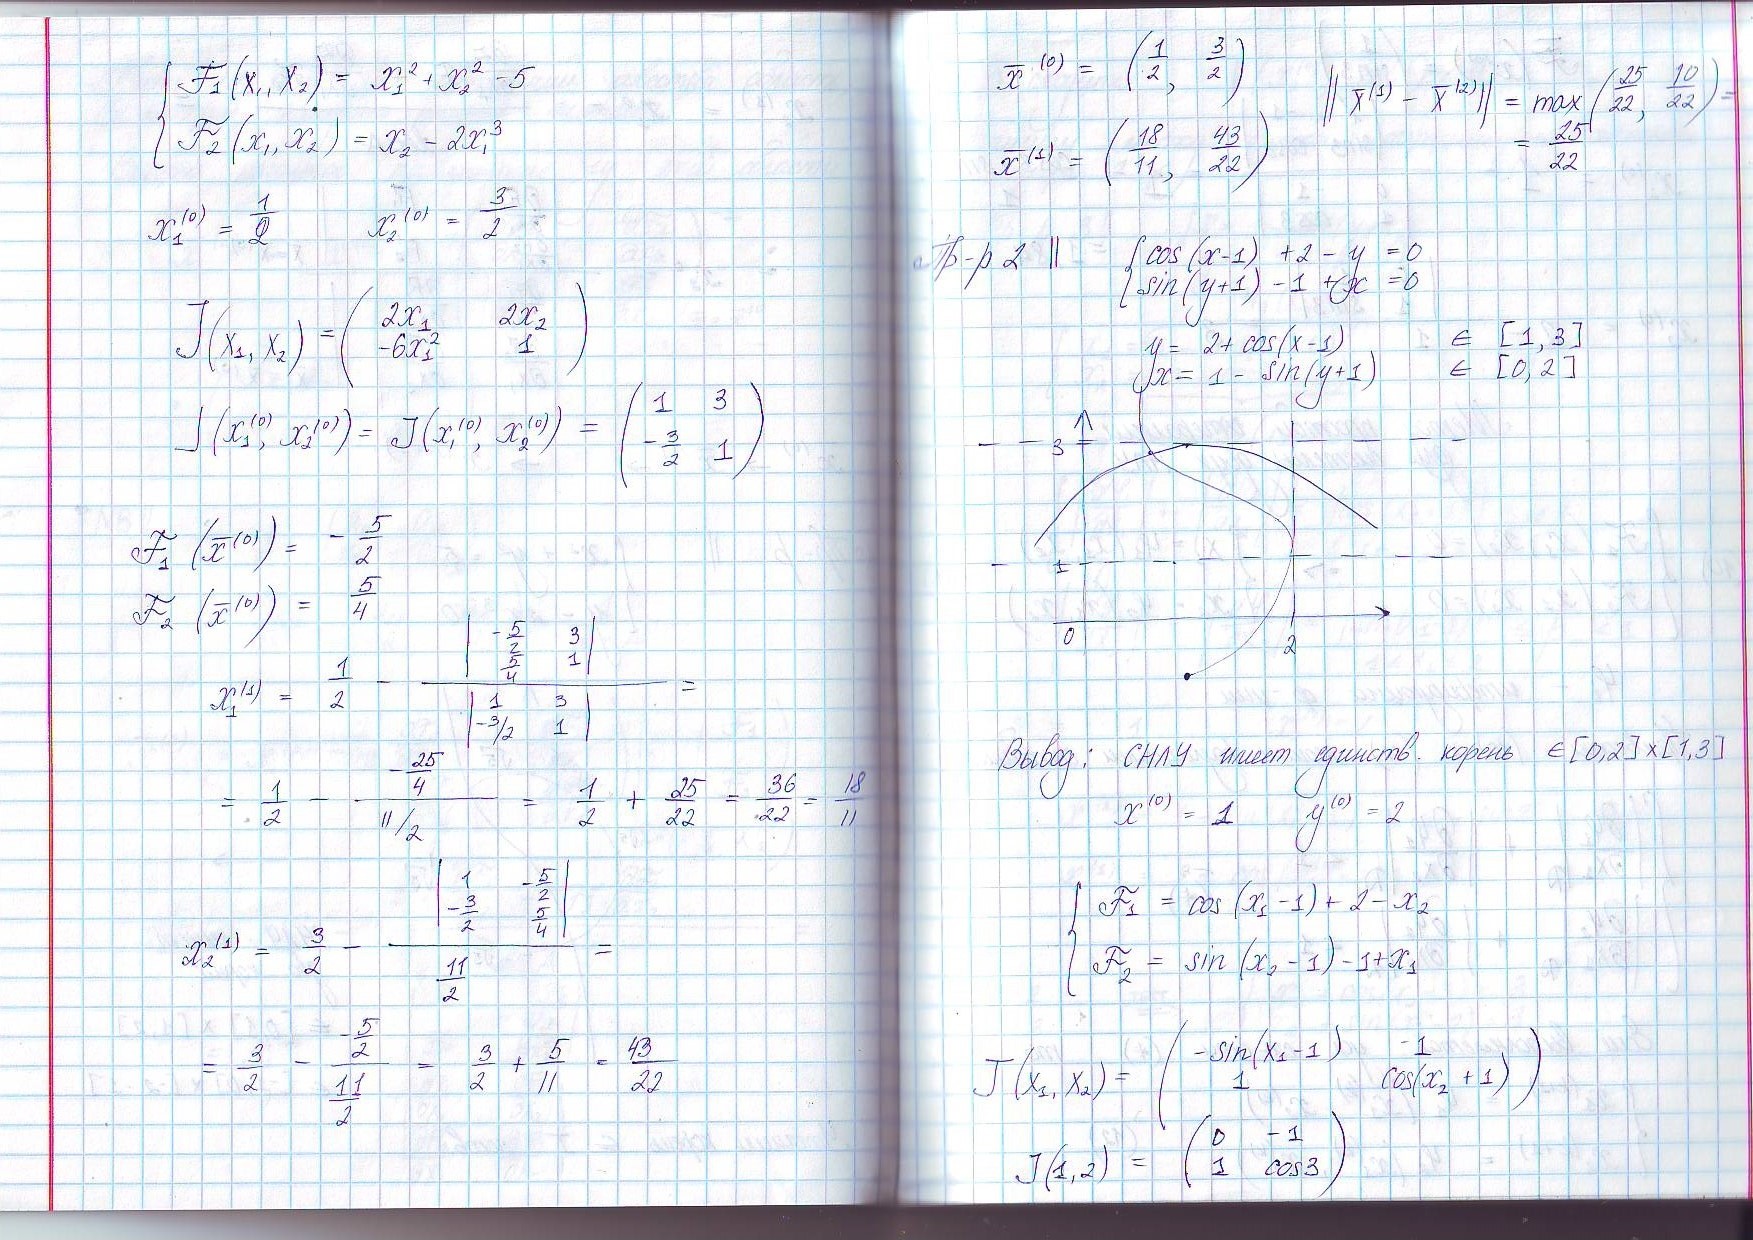 F₁(x₁, x₂) = x₁² + x₂² - 5
F₂(x₁, x₂) = x₂ - 2x₁³
x₁⁽⁰⁾ = 1/2 x₂⁽⁰⁾ = 3/2
J(x₁, x₂) = ( 2x₁ 2x₂
-6x₁² 1 )
J(x₁⁽⁰⁾, x₂⁽⁰⁾) = J(x₁⁽⁰⁾, x₂⁽⁰⁾) = ( 1 3
-3/2 1 )
F₁ (x̄⁽⁰⁾) = - 5/2
F₂ (x̄⁽⁰⁾) = 5/4
x₁⁽¹⁾ = 1/2 - | -5/2 3 ; 5/4 1 | / | 1 3 ; -3/2 1 | =
= 1/2 - (-25/4)/(11/2) = 1/2 + 25/22 = 36/22 = 18/11
x₂⁽¹⁾ = 3/2 - | 1 -5/2 ; -3/2 5/4 | / (11/2) =
= 3/2 - (-5/2)/(11/2) = 3/2 + 5/11 = 43/22
x̄⁽⁰⁾ = (1/2, 3/2)
x̄⁽¹⁾ = (18/11, 43/22)
‖x̄⁽¹⁾ - x̄⁽²⁾‖ = max(25/22, 10/22) =
= 25/22
Пр-р 2 || { cos(x-1) + 2 - y = 0
sin(y+1) - 1 + x = 0
y = 2 + cos(x-1) ∈ [1, 3]
x = 1 - sin(y+1) ∈ [0, 2]
3
1
0
2
Вывод: СНЛУ имеет единств. корень ∈ [0,2] x [1,3]
x⁽⁰⁾ = 1 y⁽⁰⁾ = 2
F₁ = cos(x₁-1) + 2 - x₂
F₂ = sin(x₂-1) - 1 + x₁
J(x₁, x₂) = ( -sin(x₁-1) -1
1 cos(x₂+1) )
J(1,2) = ( 0 -1
1 cos3 )